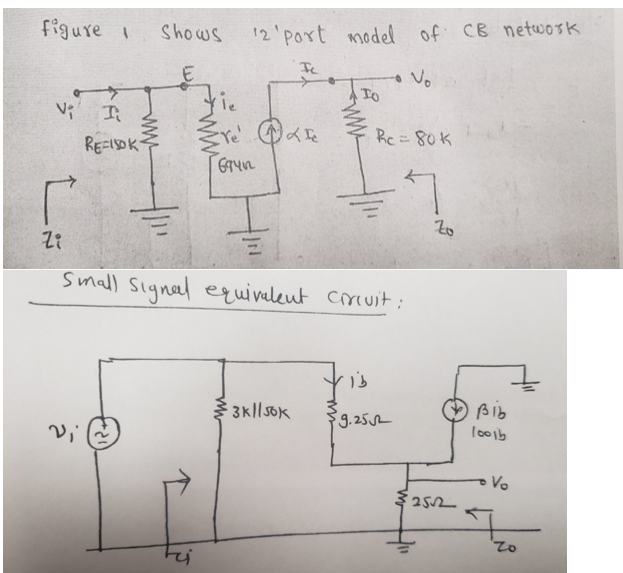 figure 1 shows '2' port model of CB network
E
Ic
Vo
Vi
Ii
ie
Io
RE=150K
re'
αIe
Rc = 80K
Zi
Zo
Small signal equivalent circuit:
ib
vi
3K||50K
9.25Ω
βib
100ib
Vo
25Ω
Zi
Zo